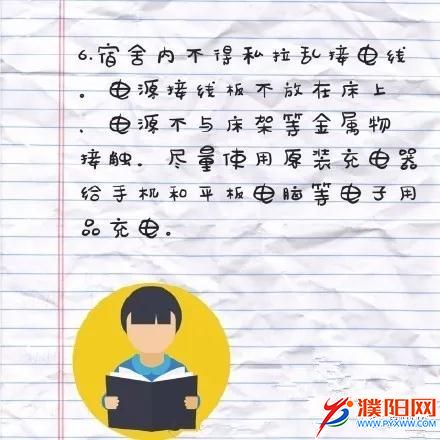 6.宿舍内不得私拉乱接电线
。电源接线板不放在床上
、电源不与床架等金属物
接触。尽量使用原装充电器
给手机和平板电脑等电子用
品充电。
濮阳网
WWW.PYXWW.COM